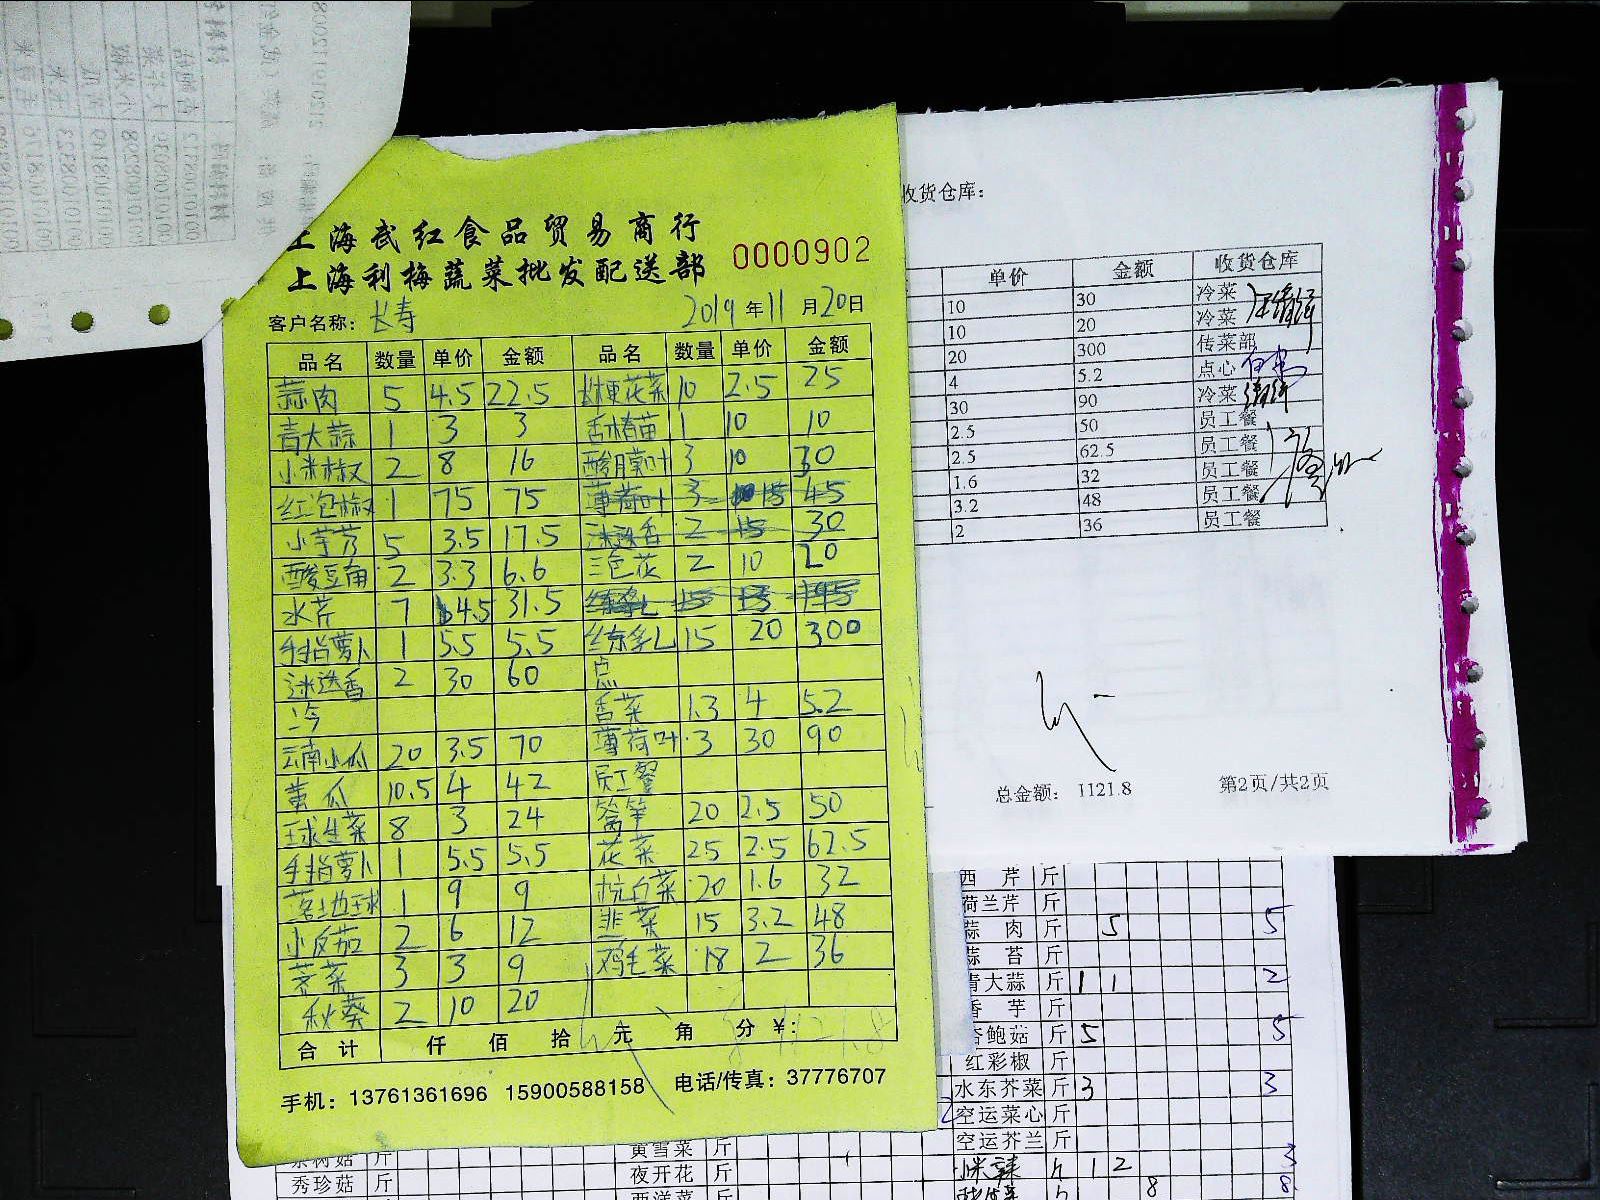 上海武红食品贸易商行
上海利梅蔬菜批发配送部 0000902
客户名称: 长寿 2019年11月20日
品名 数量 单价 金额 品名 数量 单价 金额
蒜肉 5 4.5 22.5 长梗花菜 10 2.5 25
青大蒜 1 3 3 香椿苗 1 10 10
小米椒 2 8 16 酸膜叶 3 10 30
红泡椒 1 75 75 薄荷叶 3 15 45
小芋艿 5 3.5 17.5 迷迭香 2 15 30
酸豆角 2 3.3 6.6 三色花 2 10 20
水芹 7 4.5 31.5
手指萝卜 1 5.5 5.5 炼乳 15 20 300
迷迭香 2 30 60 点
冷 香菜 1.3 4 5.2
云南小瓜 20 3.5 70 薄荷叶 3 30 90
黄瓜 10.5 4 42 员工餐
球生菜 8 3 24 莴笋 20 2.5 50
手指萝卜 1 5.5 5.5 花菜 25 2.5 62.5
1 9 9 杭白菜 20 1.6 32
小皮茄 2 6 12 韭菜 15 3.2 48
荠菜 3 3 9 鸡毛菜 18 2 36
秋葵 2 10 20
合计 仟 佰 拾 元 角 分 ¥: 1121.8
手机: 13761361696 15900588158 电话/传真: 37776707
收货仓库:
单价 金额 收货仓库
10 30 冷菜
10 20 冷菜
20 300 传菜部
4 5.2 点心
30 90 冷菜
2.5 50 员工餐
2.5 62.5 员工餐
1.6 32 员工餐
3.2 48 员工餐
2 36 员工餐
总金额: 1121.8 第2页/共2页
西芹 斤
荷兰芹 斤
蒜肉 斤 5 5
蒜苔 斤
青大蒜 斤 1 1 2
香芋 斤
杏鲍菇 斤 5 5
红彩椒 斤
水东芥菜 斤 3 3
空运菜心 斤
空运芥兰 斤
茶树菇 斤 黄雪菜 斤
秀珍菇 斤 夜开花 斤
西洋菜 斤
1 2 3
8 8